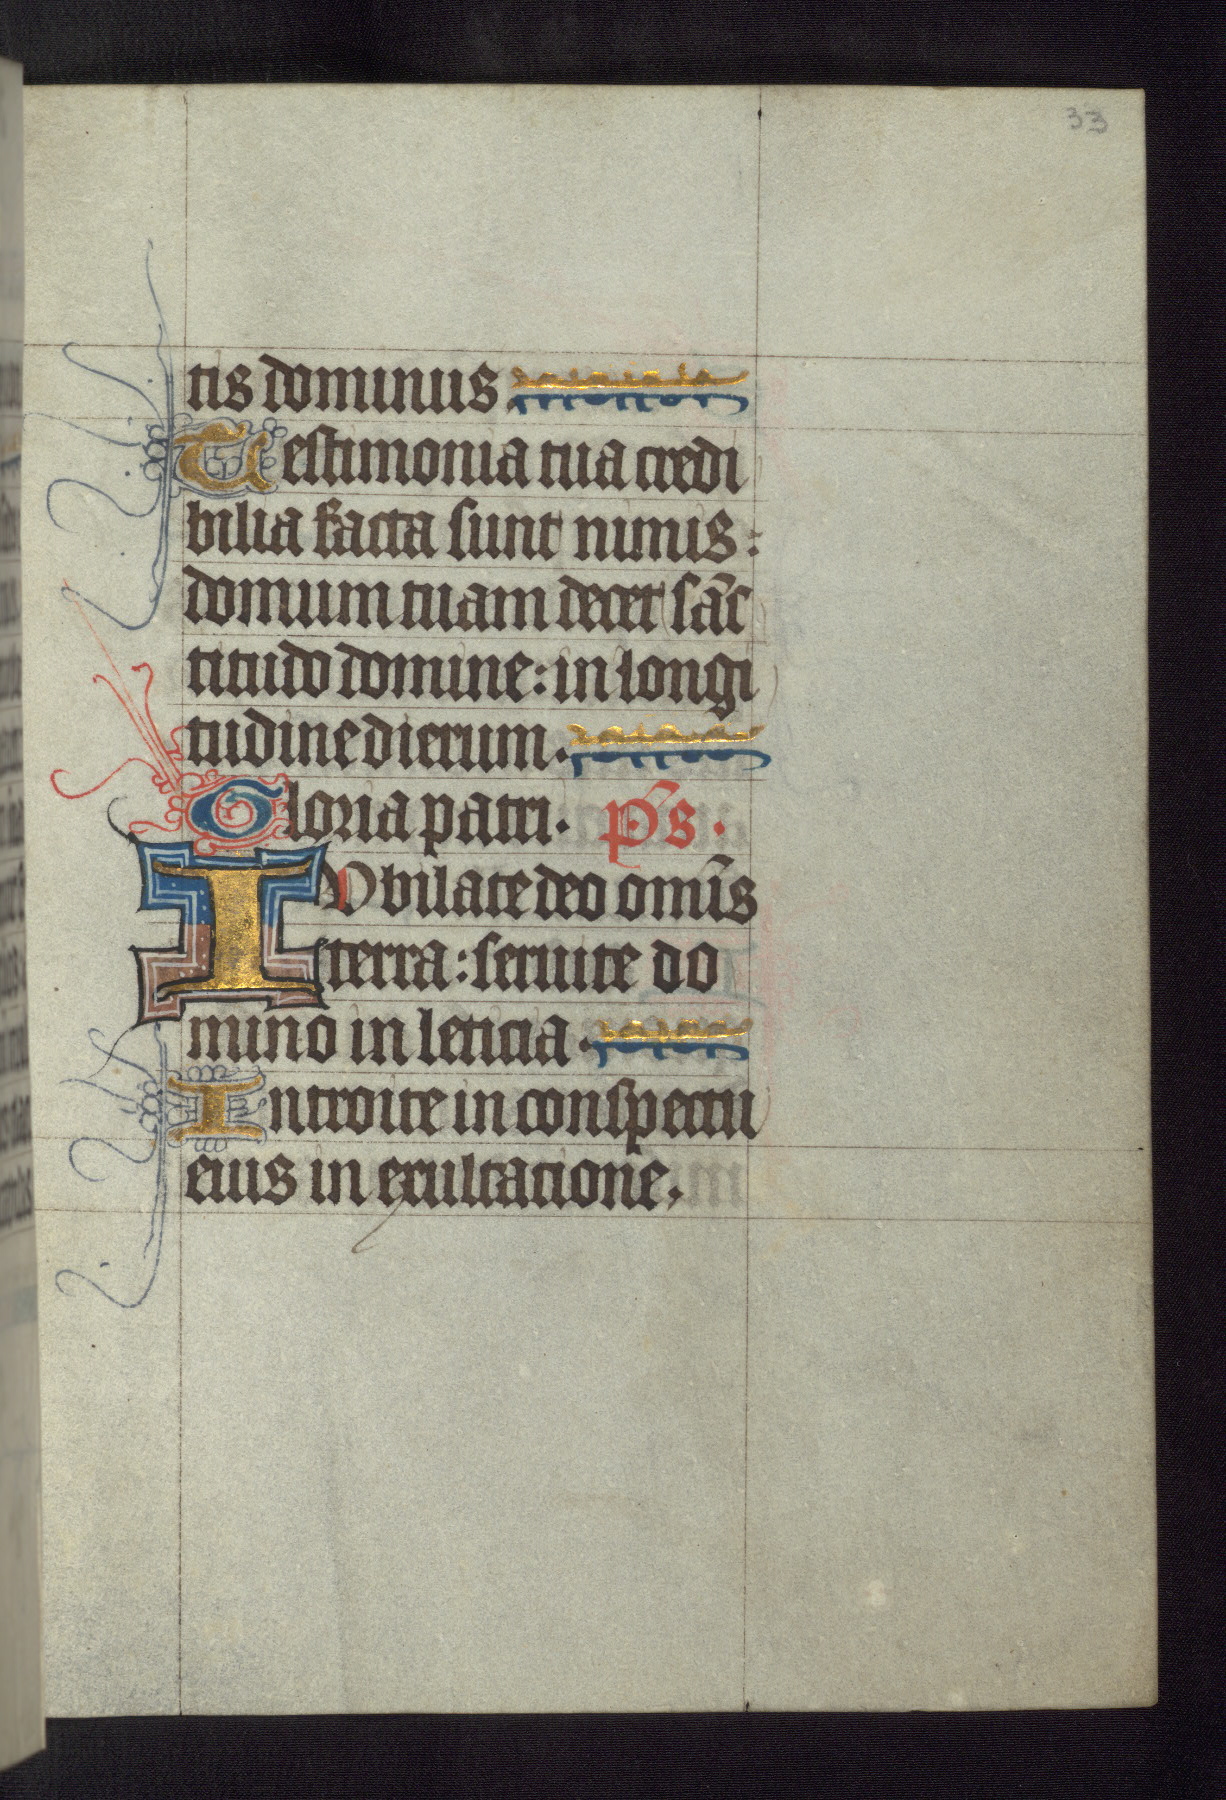 33
tis dominus.
Testimonia tua credi
bilia facta sunt nimis:
domum tuam decet sāc
titudo domine: in longi
tudine dierum.
Gloria patri. p̄s.
IUbilate deo om̄is
terra: seruite do
mino in leticia.
Introite in conspectu
eius in exultatione.